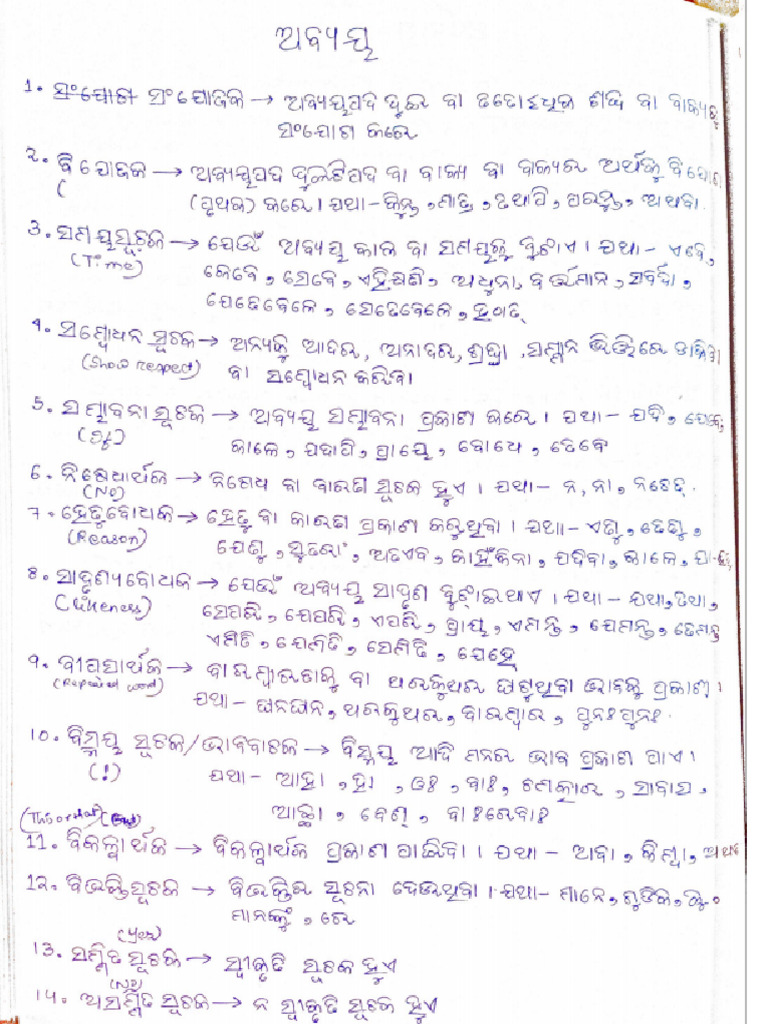 ଅବ୍ୟୟ
1. ସଂଯୋଗ ସଂଯୋଜକ → ଅବ୍ୟୟପଦ ଦୁଇ ବା ତତୋଽଧିକ ଶବ୍ଦ ବା ବାକ୍ୟକୁ
ସଂଯୋଗ କରେ
2. ବିଯୋଜକ → ଅବ୍ୟୟପଦ ଦୁଇଟିପଦ ବା ବାକ୍ୟ ବା ବାକ୍ୟର ଅର୍ଥକୁ ବିଯୋଗ
( (ପୃଥକ) କରେ । ଯଥା - କିନ୍ତୁ, ମାତ୍ର, ତଥାପି, ପରନ୍ତୁ, ଅଥବା
3. ସମୟସୂଚକ → ଯେଉଁ ଅବ୍ୟୟ କାଳ ବା ସମୟକୁ ବୁଝାଏ । ଯଥା - ଏବେ,
(Time) କେବେ, ସେବେ, ଏହିକ୍ଷଣି, ଅଧୁନା, ବର୍ତ୍ତମାନ, ସର୍ବଦା,
ଯେତେବେଳେ, ସେତେବେଳେ, ହଠାତ୍
4. ସମ୍ବୋଧନ ସୂଚକ → ଅନ୍ୟକୁ ଆଦର, ଅନାଦର, ଶ୍ରଦ୍ଧା, ସମ୍ମାନ ଭିତ୍ତିରେ ଡାକିବା
(Show respect) ବା ସମ୍ବୋଧନ କରିବା
5. ସମ୍ଭାବନା ସୂଚକ → ଅବ୍ୟୟ ସମ୍ଭାବନା ପ୍ରକାଶ କରେ । ଯଥା - ଯଦି, ଯେବେ,
କାଳେ, ଯଦ୍ୟପି, ପ୍ରାୟେ, ବୋଧେ, ତେବେ
6. ନିଷେଧାର୍ଥକ → ନିଷେଧ ବା ବାରଣ ସୂଚକ ହୁଏ । ଯଥା - ନ, ନା, ନଚେତ୍
(No)
7. ହେତୁବୋଧକ → ହେତୁ ବା କାରଣ ପ୍ରକାଶ କରୁଥିବା । ଯଥା - ଏଣୁ, ତେଣୁ,
(Reason) ଯେଣୁ, ସୁତରାଂ, ଅତଏବ, କାହିଁକିନା, ଯଦିବା, କାଳେ,
8. ସାଦୃଶ୍ୟବୋଧକ → ଯେଉଁ ଅବ୍ୟୟ ସାଦୃଶ ବୁଝାଇଥାଏ । ଯଥା - ଯଥା, ତଥା,
(Likeness) ସେପରି, ଯେପରି, ଏପରି, ପ୍ରାୟ, ଏମନ୍ତ, ଯେମନ୍ତ, ତେମନ୍ତ
ଏମିତି, ଯେମିତି, ସେମିତି, ଯେହ୍ନେ
9. ବୀପସାର୍ଥକ → ବାରମ୍ବାରତାକୁ ବା ଥରକୁଥର ଘଟୁଥିବା ଭାବକୁ ପ୍ରକାଶେ ।
(Repeated word) ଯଥା - ଘନଘନ, ଥରକୁଥର, ବାରମ୍ବାର, ପୁନଃପୁନଃ
10. ବିସ୍ମୟ ସୂଚକ/ଭାବବାଚକ → ବିସ୍ମୟ ଆଦି ମନର ଭାବ ପ୍ରକାଶ ପାଏ ।
(!) ଯଥା - ଆହା, ହା, ଓଃ, ବାଃ, ଚମତ୍କାର, ସାବାସ,
ଆଚ୍ଛା, ବେଶ୍, ବାଃରେବାଃ
11. ବିକଳ୍ପାର୍ଥକ → ବିକଳ୍ପାର୍ଥକ ପ୍ରକାଶ ପାଇବା । ଯଥା - ଅବା, କିମ୍ବା, ଅଥବା
12. ବିଭକ୍ତିସୂଚକ → ବିଭକ୍ତିର ସୂଚନା ଦେଉଥିବା । ଯଥା - ମାନେ, ଗୁଡିକ, କୁ
ମାନଙ୍କୁ, ରେ
(Yes)
13. ସମ୍ମତି ସୂଚକ → ସ୍ୱୀକୃତି ସୂଚକ ହୁଏ
(No)
14. ଅସମ୍ମତି ସୂଚକ → ନ ସ୍ୱୀକୃତି ସୂଚକ ହୁଏ